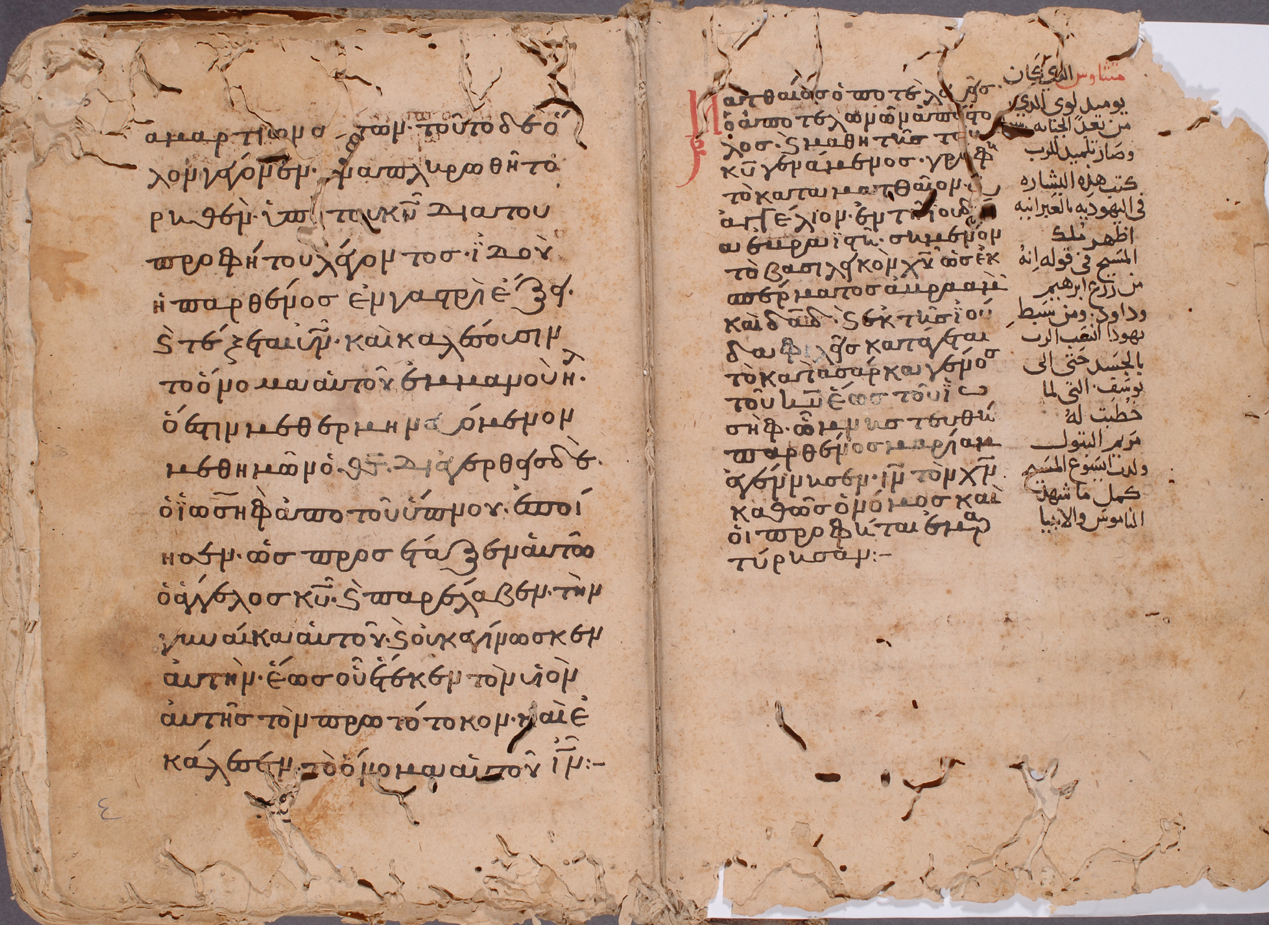 αμαρτιωμ α των· τοῦτο δε ὅ
λον γέγόνεν· ἵνα πλυρωθῆ τὸ
ρηθὲν· ὑπ του κυ̅ δια του
προφήτου λέγοντος· ἰδοὺ
ἡ παρθένος ἐν γαστρὶ ἕξει·
ϗ τέξεται υν̅· καὶ καλέσουσιν
το ὄνομα αὐτοῦ εμμανουήλ·
ὅ ἐστιν μεθερμηνευόμενον
μεθημῶν ὁ θς̅· Διεγερθεὶς δὲ·
ὁ ἰωσὴφ ἀπο τοῦ ὕπνου· ἐποί
ησεν· ὡς προσέταξεν αὐτῶ
ὁ ἄγγελος κυ̅· ϗ παρέλαβεν· τὴν
γυναίκα αὐτοῦ· ϗ οὐκ εγίνωσκεν
ἀυτὴν· ἕως οὗ ἔτεκεν τὸν υἱὸν
ἀυτῆς τὸν πρωτότοκον· καὶ ἐ
κάλεσεν· τὸ ὄνομα αὐτοῦ ιν̅:–
Ματθαῖος ὁ ποτε
ὁ ἀπο τελωνῶν ἀποστο
λος· ϗ μαθητὴς του
κυ̅ γενάμενος· γράφει
τὸ κατα ματθαῖον· ευ
αγγέλιον· ἐν τῆ ἰουδ
σημένον
τὸ βασιλεικον χυ̅ ὡς ἐκ
σπέρματος ἀβραὰμ
καὶ δαδ̅· ϗ ἐκ τῆς ἰού
δα φιλῆς κατάγεται
τὸ κατὰ σάρκα γένος
τοῦ κυ̅ ἕως τοῦ ἰω
σὴφ· ὧ μνηστευθῆ
παρθένος μαρίαμ
γέννησεν· ιν̅ τὸν χν̅
καθὼς ὁ νόμος καὶ
ὁι προφήται ἐμαρ
τύρησάν:–
متتاوس الدي كان
يوميد لوى الدي
من بعد الجبايه
وصار تلميد للرب
كتب هده البشاره
في اليهوديه بالعبرانيه
اظهر ملك
المسيح في قوله انه
من زرع ابرهيم
وداود· ومن سبط
يهودا انتسب الرب
بالجسد حتى الى
يوسف· التي لما
خطبت له
مريم البتول
ولدت ايسوع المسيح
كمل ما شهد
الناموس والانبيا